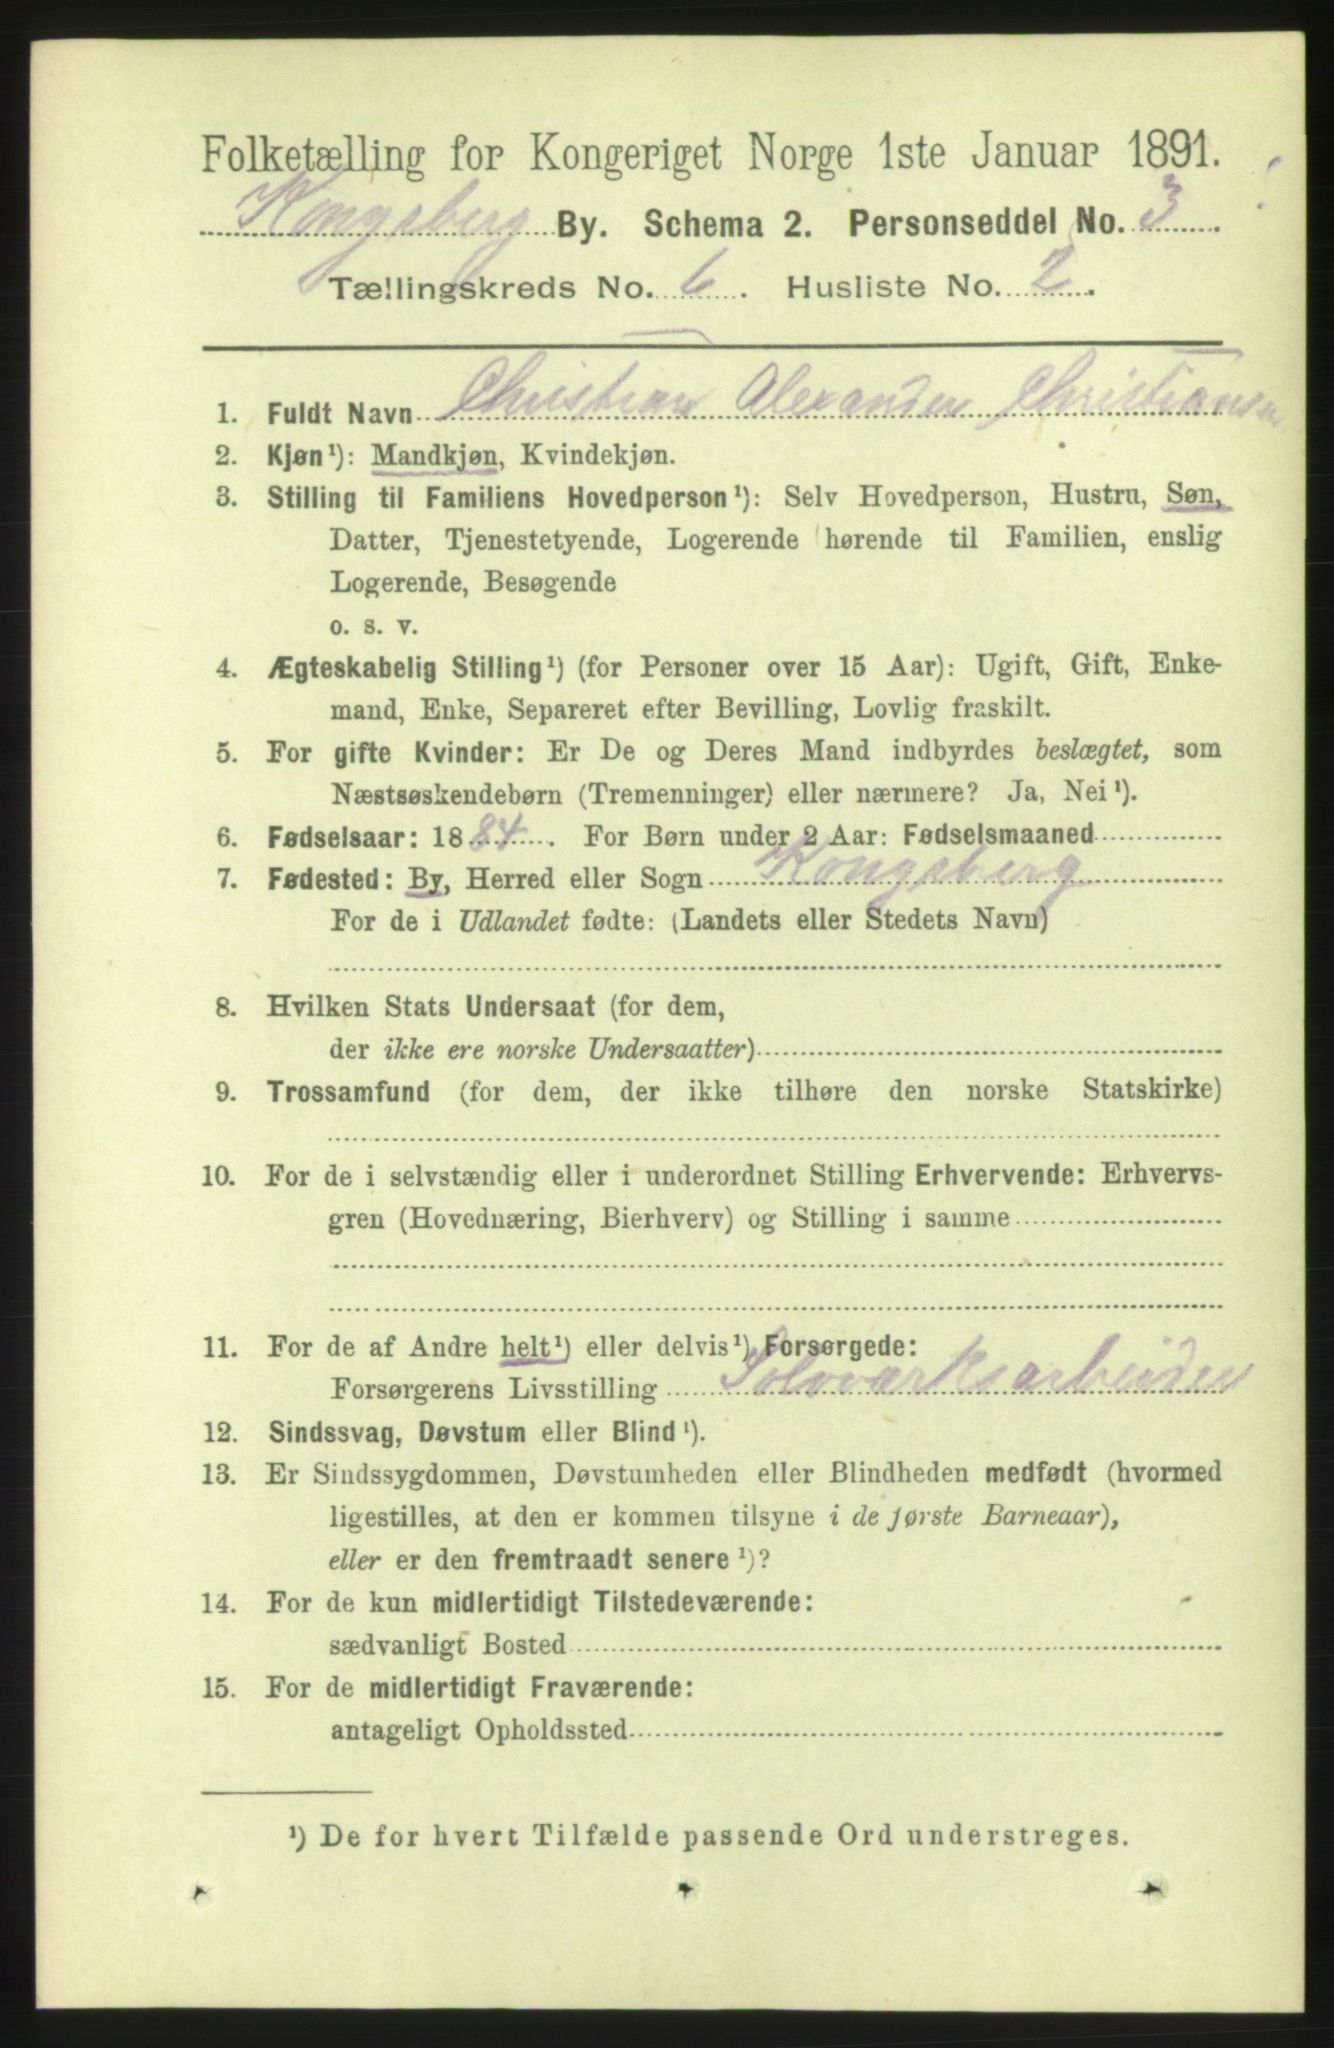 Folketælling for Kongeriget Norge 1ste Januar 1891.
Kongsberg By. Schema 2. Personseddel No. 3
Tællingskreds No. 6. Husliste No. 2.
1. Fuldt Navn Christian Alexander Christiansen
2. Kjøn¹): Mandkjøn, Kvindekjøn.
3. Stilling til Familiens Hovedperson¹): Selv Hovedperson, Hustru, Søn,
Datter, Tjenestetyende, Logerende hørende til Familien, enslig
Logerende, Besøgende
o. s. v.
4. Ægteskabelig Stilling¹) (for Personer over 15 Aar): Ugift, Gift, Enke-
mand, Enke, Separeret efter Bevilling, Lovlig fraskilt.
5. For gifte Kvinder: Er De og Deres Mand indbyrdes beslægtet, som
Næstsøskendebørn (Tremenninger) eller nærmere? Ja, Nei¹).
6. Fødselsaar: 1884. For Børn under 2 Aar: Fødselsmaaned
7. Fødested: By, Herred eller Sogn Kongsberg
For de i Udlandet fødte: (Landets eller Stedets Navn)
8. Hvilken Stats Undersaat (for dem,
der ikke ere norske Undersaatter)
9. Trossamfund (for dem, der ikke tilhøre den norske Statskirke)
10. For de i selvstændig eller i underordnet Stilling Erhvervende: Erhvervs-
gren (Hovednæring, Bierhverv) og Stilling i samme
11. For de af Andre helt¹) eller delvis¹) Forsørgede:
Forsørgerens Livsstilling Sølvværksarbeider
12. Sindssvag, Døvstum eller Blind¹).
13. Er Sindssygdommen, Døvstumheden eller Blindheden medfødt (hvormed
ligestilles, at den er kommen tilsyne i de første Barneaar),
eller er den fremtraadt senere¹)?
14. For de kun midlertidigt Tilstedeværende:
sædvanligt Bosted
15. For de midlertidigt Fraværende:
antageligt Opholdssted
¹) De for hvert Tilfælde passende Ord understreges.